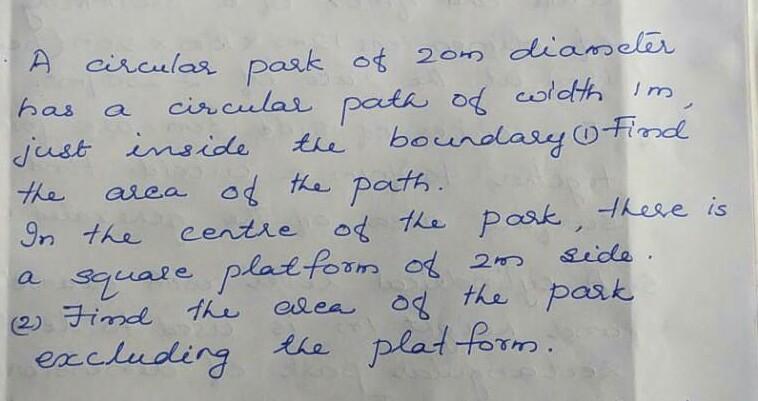 A circular park of 20m diameter
has a circular path of width 1m,
just inside the boundary ① Find
the area of the path.
In the centre of the park, there is
a square platform of 2m side.
(2) Find the area of the park
excluding the platform.